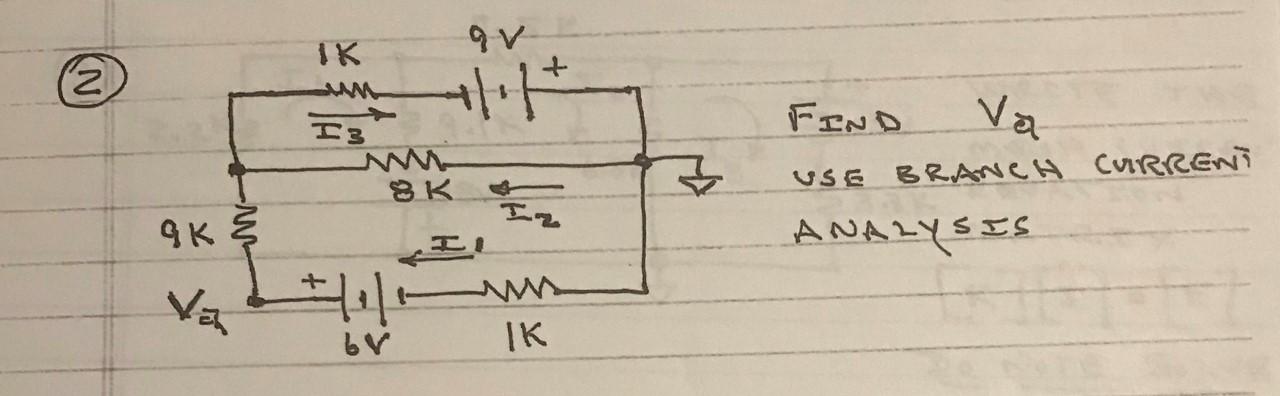 2
1K
9V
+
I3
FIND Va
8K
USE BRANCH CURRENT
I2
9K
ANALYSIS
I1
+
Va
6V
1K